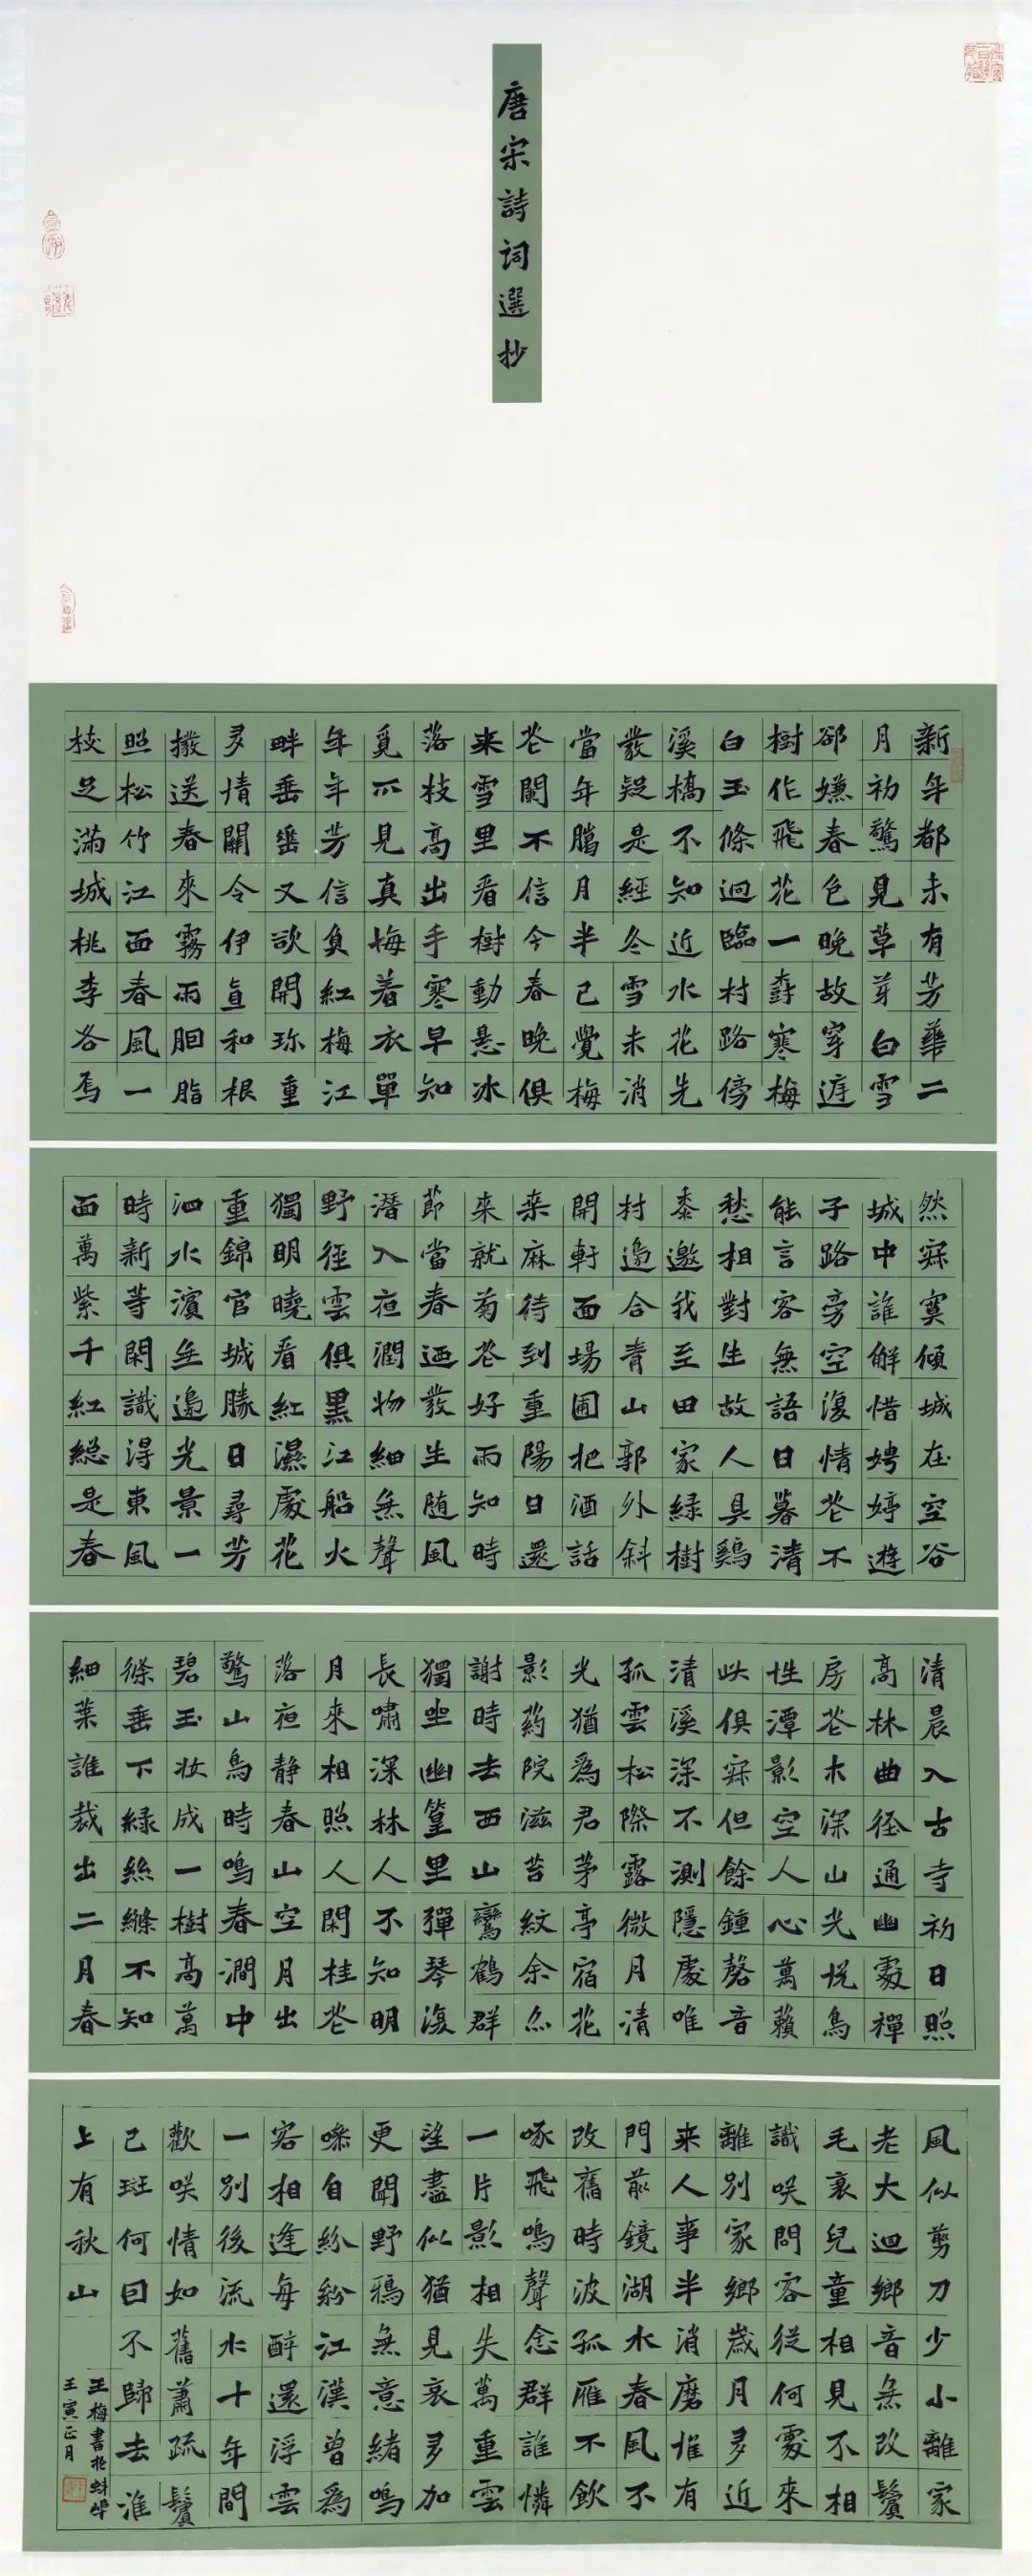 唐宋詩詞選抄
新年都未有芳華二
月初驚見草芽白雪
郤嫌春色晚故穿庭
樹作飛花一樹寒梅
白玉條迥臨村路傍
溪橋不知近水花先
發疑是經冬雪未消
當年臈月半已覺梅
花闌不信今春晚俱
来雪里看樹動懸冰
落枝高出手寒早知
覓不見真梅着衣單
年年芳信負紅梅江
畔垂垂又欲開珎重
多情關令伊直和根
撥送春來霧雨胭脂
照松竹江面春風一
枝足滿城桃李各焉
然寂寞傾城在空谷
城中誰解惜娉婷遊
子路旁空復情花不
能言客無語日暮清
愁相對生故人具鷄
黍邀我至田家緑樹
村邊合青山郭外斜
開軒面場圃把酒話
桒麻待到重陽日還
来就菊花好雨知時
節當春迺發生随風
潛入夜潤物細無聲
野徑雲俱黑江船火
獨明曉看紅濕處花
重錦官城勝日尋芳
泗水濱無邊光景一
時新等閑識得東風
面萬紫千紅總是春
清晨入古寺初日照
高林曲徑通幽處禪
房花木深山光悅鳥
性潭影空人心萬籟
此俱寂但餘鍾磬音
清溪深不測隱處唯
孤雲松際露微月清
光猶爲君茅亭宿花
影葯院滋苔紋余亦
謝時去西山鸞鶴群
獨坐幽篁里彈琴復
長嘯深林人不知明
月來相照人閑桂花
落夜静春山空月出
驚山鳥時鳴春澗中
碧玉妝成一樹高萬
條垂下緑絲縧不知
細葉誰裁出二月春
風似剪刀少小離家
老大迴鄉音無改鬢
毛衰兒童相見不相
識咲問客從何處來
離別家鄉歲月多近
来人事半消磨惟有
門前鏡湖水春風不
改舊時波孤雁不飲
啄飛鳴聲念群誰憐
一片影相失萬重雲
望盡似猶見哀多加
更聞野鴉無意緒鳴
噪自紛紛江漢曾爲
客相逢每醉還浮雲
一別後流水十年間
歡咲情如舊蕭疏鬢
已斑何因不歸去淮
上有秋山
王梅書於蚌埠
壬寅正月